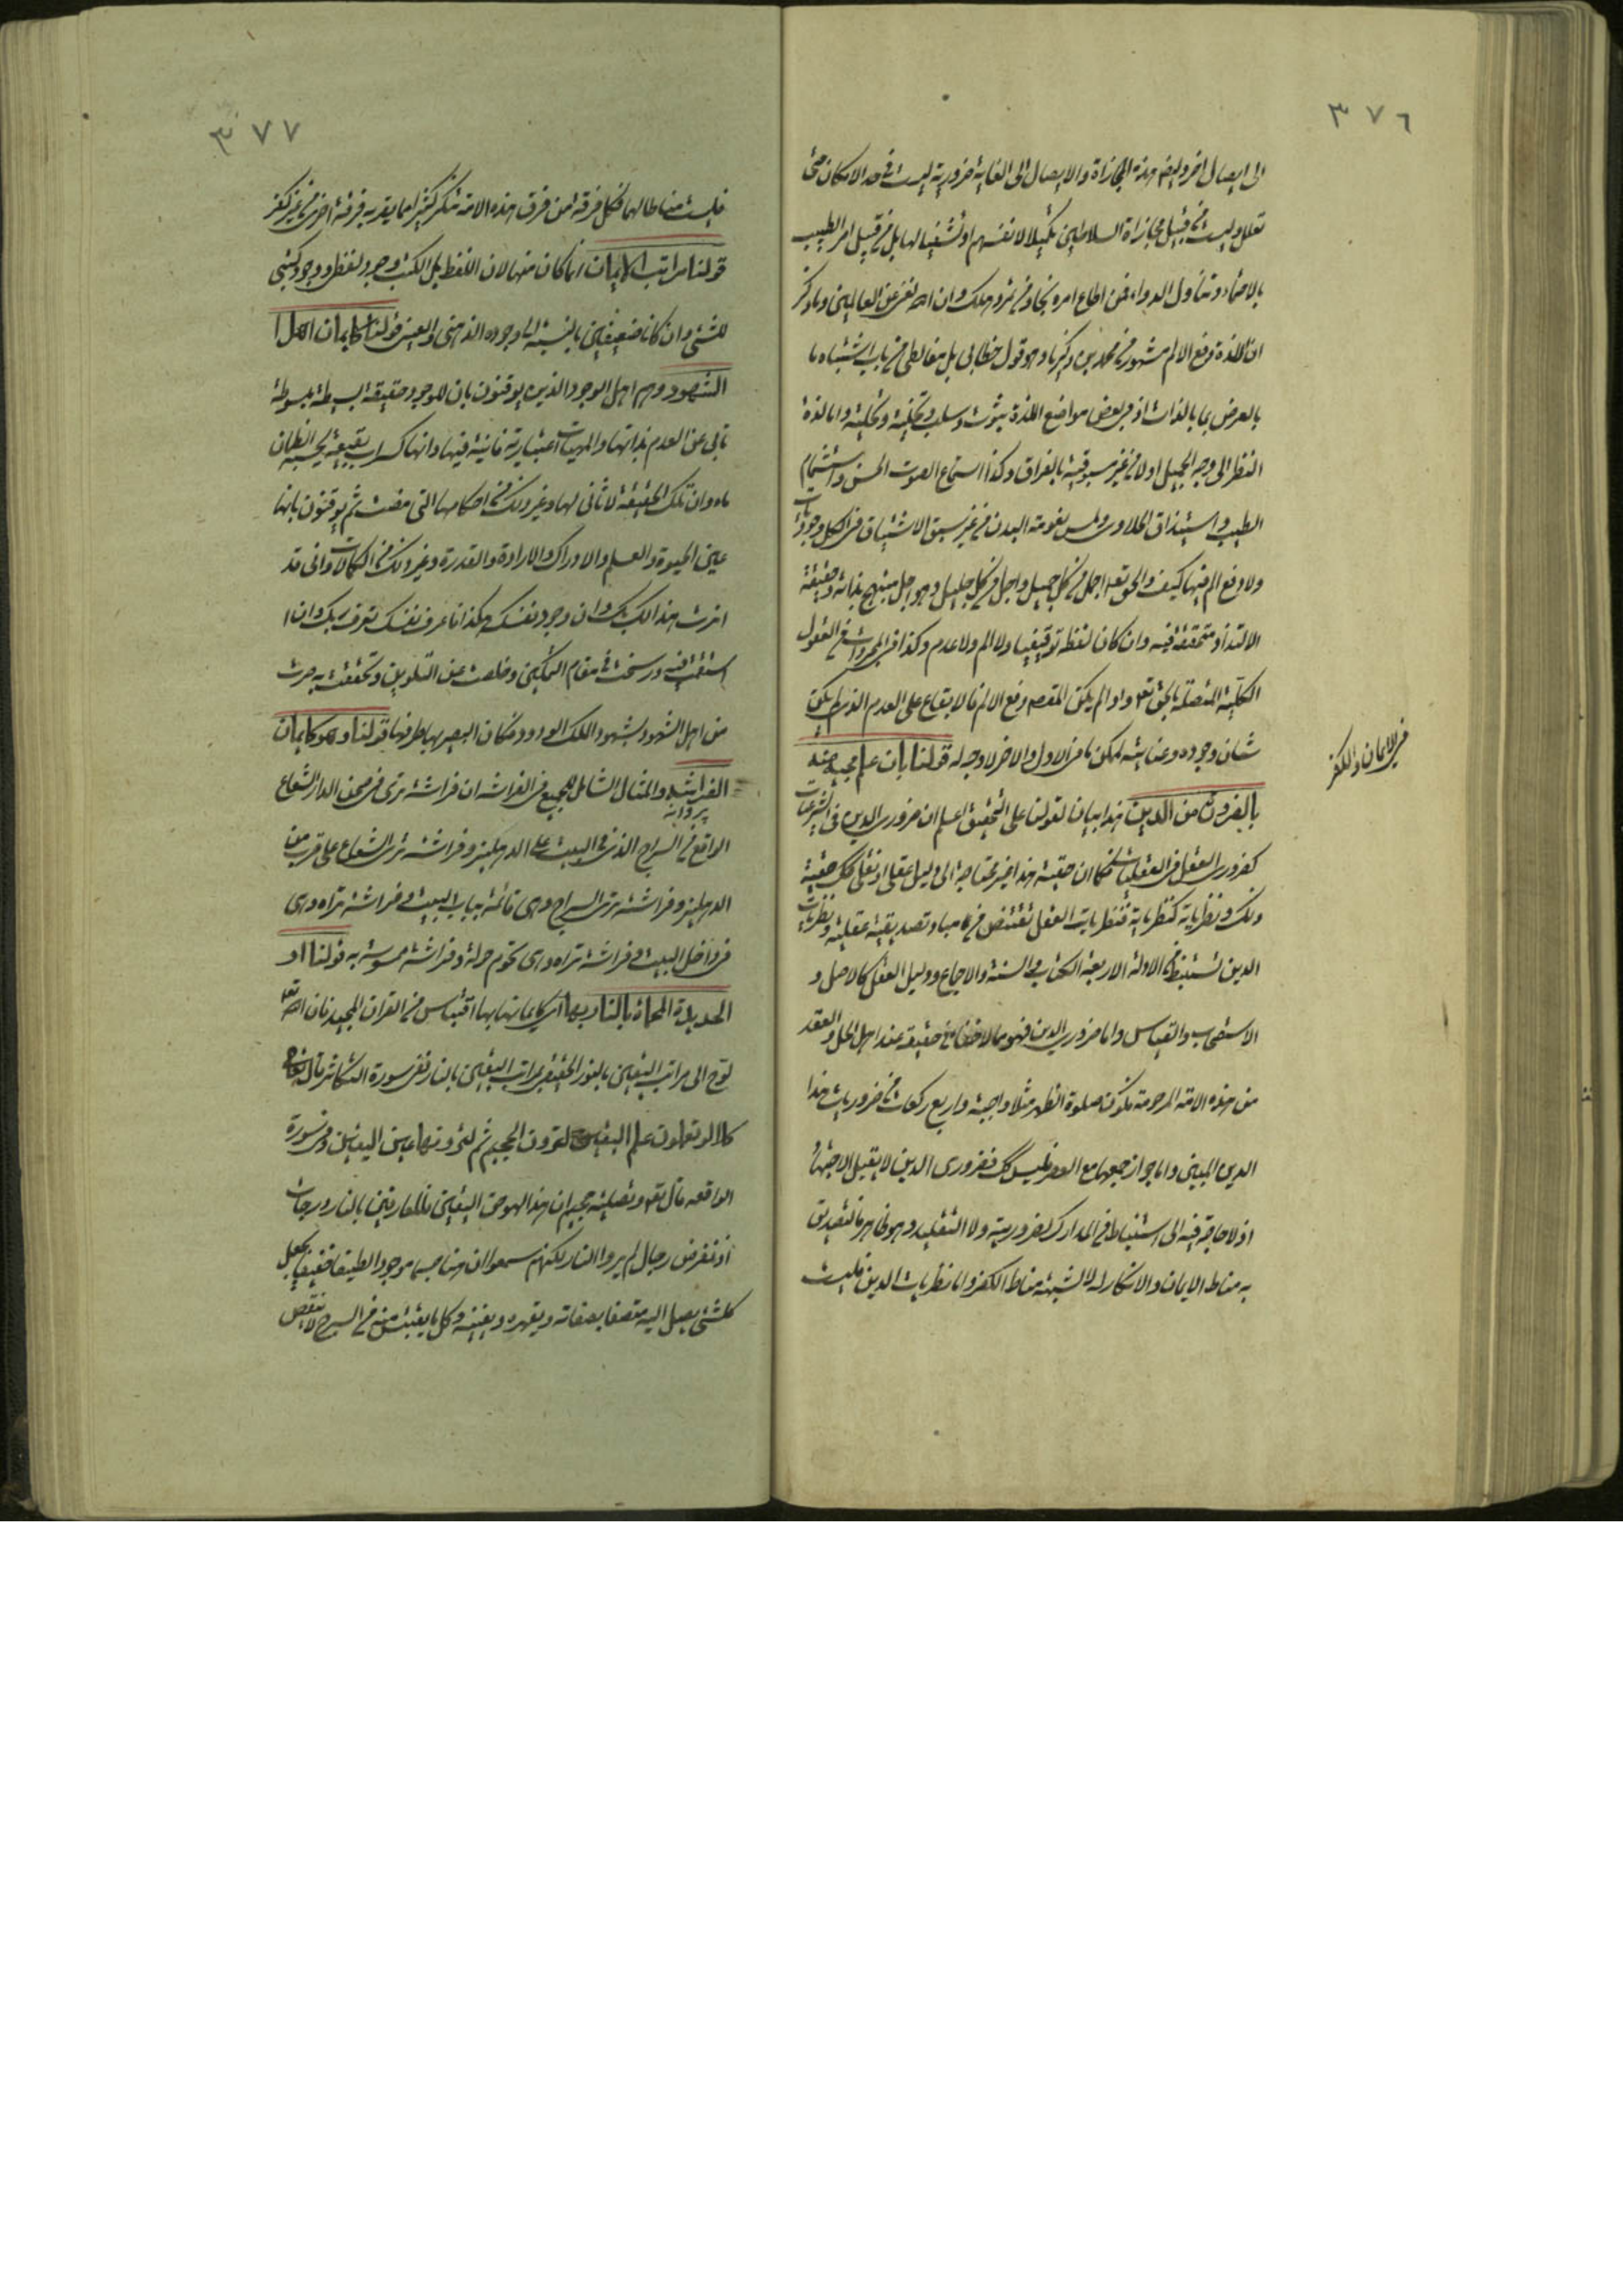 ٣٧٦
الى ايصال اخر وبعضهم هذه المجازاة والايصال الى الغاية ضرورية ليست فى حد الامكان حتى
تعلل وليست من قبيل مجازاة السلاطين تكميلا لانفسهم او تشفيا لها بل من قبيل امر الطبيب
بالاحتماء وتناول الدواء فمن اطاع امره نجا ومن تمرد هلك وان الله لغنى عن العالمين وما ذكر
ان اللذة دفع الالم مشهور من محمد بن زكريا وهو قول خطابى بل مغالطى من باب اشتباه ما
بالعرض بما بالذات اذ فى بعض مواضع اللذة ثبوت وسلب وتخلية وتحلية واما لذة
النظر الى وجه الجميل اولا من غير مسبوقية بالفراق وكذا استماع الصوت الحسن واستشمام
الطيب واستيذاق الحلاوى ولمس نعومة البدن من غير سبق الاشتياق فى الكل وجوديات
ولا دفع الم فيها كيف والحق تعه اجمل من كل جميل واجل من كل جليل وهو اجل مبتهج بذاته وحقيقة
الالتذاذ متحققة فيه وان كان لفظه توقيفيا ولا الم ولا عدم وكذا فى المجردات فى العقول
الكلية المتصلة بالحق تعه واذ لم يكن المقصد دفع الالم فالابقاع على العدم الذى لم يكن
شان وجوده وعنايته لممكن ما فى الاول والاخر لا وجه له قولنا بان علم مجيئه
بالضرورة من الدين هذا بيان لقولنا على التحقيق اعلم ان ضرورى الدين فى الشرعيات
كضرورى العقل فى العقليات فكما ان حقية هذا غير محتاجة الى دليل عقلى او نقلى كك حقية
ذلك ونظرياته كنظرياته فنظريات العقل تقتنص من مباد تصديقية عقلية ونظريات
الدين تستنبط من الادلة الاربعة الكتاب والسنة والاجماع ودليل العقل كالاصل و
الاستصحاب والقياس واما ضرورى الدين فهو مما لا خفاء فى حقيقته عند اهل الحل والعقد
من هذه الامة المرحومة ككون صلوة الظهر مثلا واجبة واربع ركعات من ضروريات هذا
الدين المبين واما جواز جمعها مع العصر فليس كك فضرورى الدين لا يقبل الاجتهاد
اذ لا حاجة فيه الى استنباط من المدارك لضروريته ولا التقليد وهو ظاهر فالتصديق
به مناط الايمان والانكار له لا لشبهة مناط الكفر واما نظريات الدين فليست
فى الايمان والكفر
٣٧٧
فليست مناطا لهما فكل فرقة من فرق هذه الامة تنكر كثيرا مما يقر به فرقة اخرى من غير كفر
قولنا مراتب الايمان انما كان منها لان اللفظ بل الكتب وجود لفظى ووجود كتبى
للشىء وان كانا ضعيفين بالنسبة الى وجوده الذهنى والعينى قولنا كايمان اهل ا
الشهود وهم اهل الوجود الذين يوقنون بان للوجود حقيقة بسيطة مبسوطة
تابى عن العدم بذاتها والمهيات اعتبارية فانية فيها وانها كسراب بقيعة يحسبه الظمان
ماء وان تلك الحقيقة لا ثانى لها وغير ذلك من احكامها التى مضت ثم يوقنون بانها
عين الحيوة والعلم والادراك والارادة والقدرة وغير ذلك من الكمالات وانى قد
اثرت هذا لك بك وان وجود نفسك هكذا فاعرف نفسك تعرف ربك وان ا
استقمت فيه ورسخت فى مقام التمكين وخلصت عن التلوين وتحققت به صرت
من اهل الشهود بشهود الملك الودود فكان البصير بها طرفها قولنا وهو كايمان
الفراشة والمثال الشامل للجميع فى الفراشة ان فراشة ترى فى صحن الدار الشعاع
پروانه
الواقع من السراج الذى فى البيت على الدهليز وفراشة ترى الشعاع على قرب من
الدهليز وفراشة ترى السراج وهى قائمة بباب البيت وفراشة تراه وهى
فى داخل البيت وفراشة تراه وهى تحوم حوله وفراشة ممسوسة به قولنا او
الحديدة المحماة بالنار بها اى كايمانها بها اقتباس من القرآن المجيد فان الله تعه
لوح الى مراتب اليقين بالنور الحقيقى بمراتب اليقين بالنار ففى سورة التكاثر قال تعالى
كلا لو تعلمون علم اليقين لترون الجحيم ثم لترونها عين اليقين وفى سورة
الواقعة قال تعه وتصلية جحيم ان هذا لهو حق اليقين فللعارفين بالنار درجات
اذ نفرض رجال لم يروا النار لكنهم سمعوا ان هنا جسما موجودا لطيفا خفيفا يجعل
كلشىء يصل اليه متصفا بصفاته ويقهره ويفنيه وكل ما يقتبس منه من السرج لا ينقص